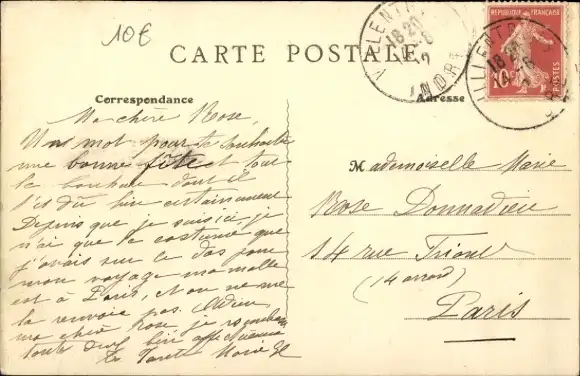 10€
CARTE POSTALE
Correspondance
Adresse
Ma chère Rose,
Un mot pour te souhaiter
une bonne fête et tout
le bonheur dont il
certainement
Depuis que je suis ici, je
n'ai que le costume que
j'avais sur le dos pour
mon voyage ma malle
est à Paris, et on ne me
la renvoie pas. Adieu
ma chère Rose je
toute deux bien
Marie
Mademoiselle Marie
Rose Donnadieu
14 rue
(14 arrond)
Paris
VILLENTR
18 20
INDRE
REPUBLIQUE FRANÇAISE
10
POSTES
VILLENTR
18 20